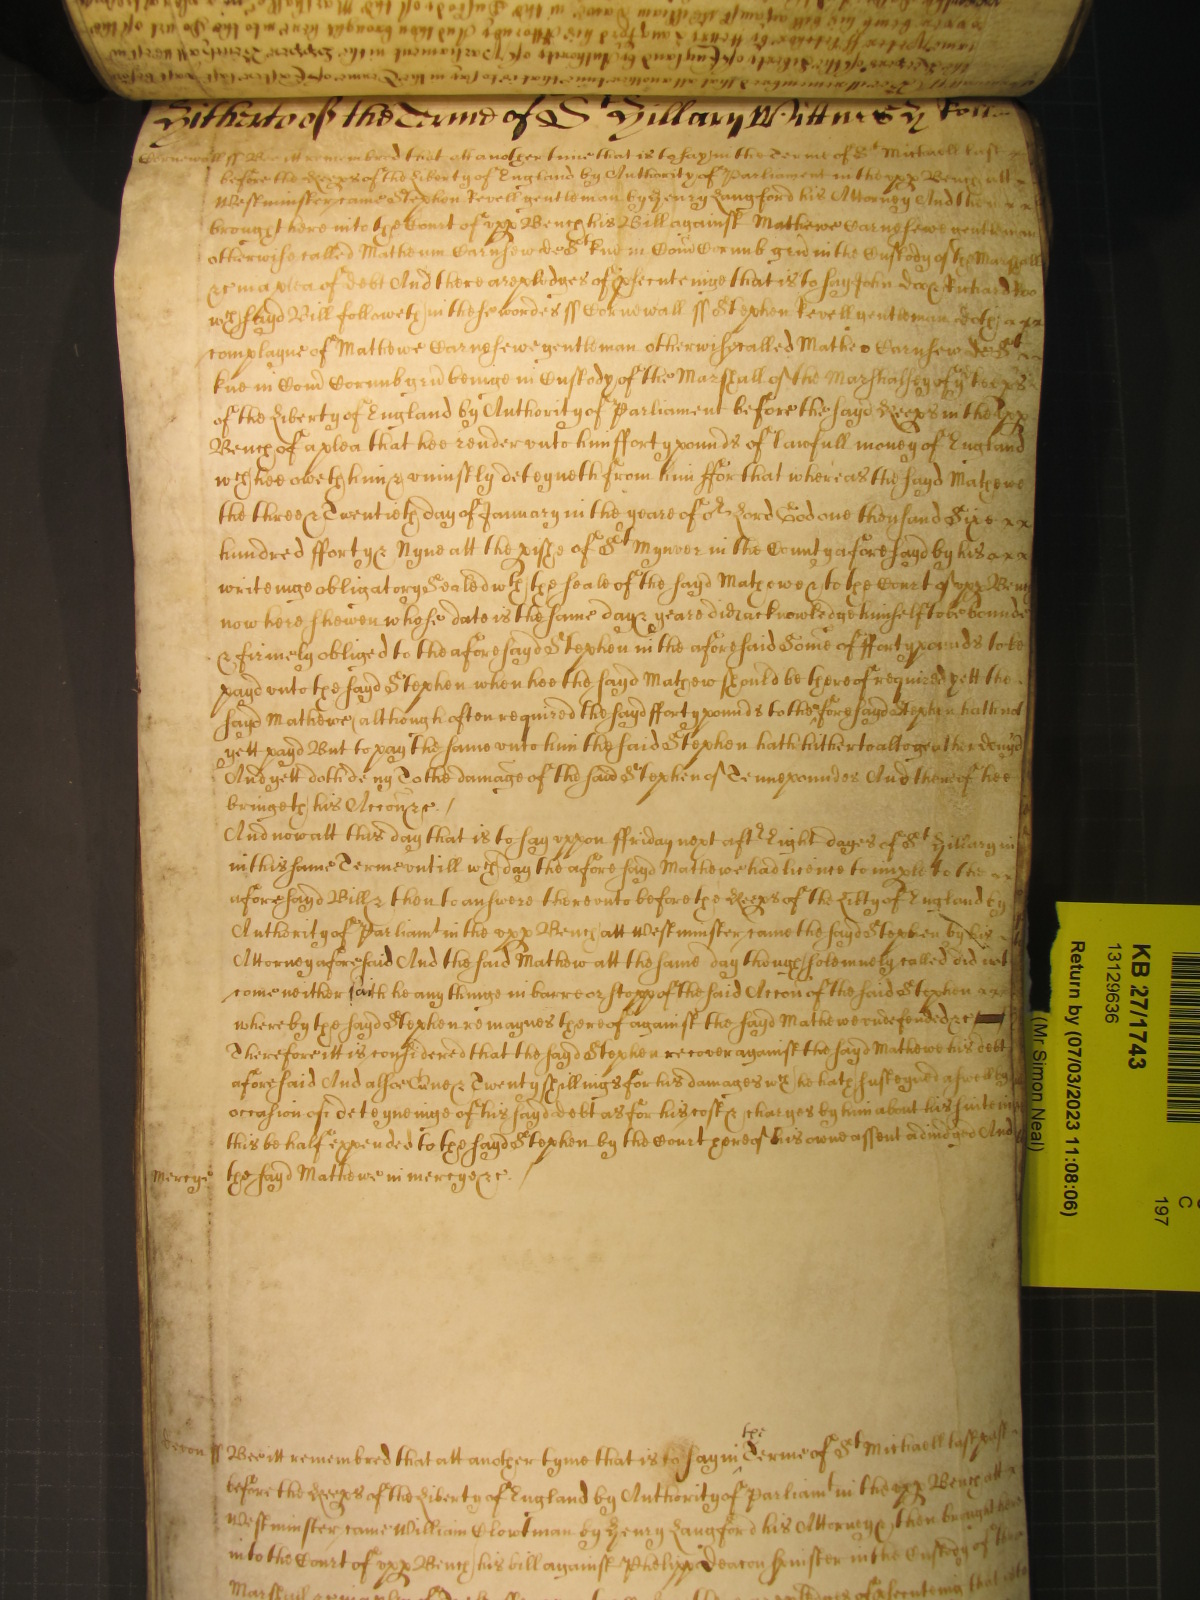 Hitherto of the Terme of St Hillary Wittnes H Roll
Cornewall ss Bee itt remembred that att another time that is to say in the Terme of St Michaell last
before the Keeps of the liberty of England by Authority of Parliament in the upp Bench att
Westminster came Stephen Kevell gentleman by Henry Langford his Attorney And then
brought here into the Court of upp Bench his Bill against Mathewe Carnsewe gentleman
otherwise called Matheum Carnsew de St Kue in Com Cornub gen in the Custody of the Marshall
&c in a plea of debt And there are pledges of psecuteinge that is to say John Doe & Richard Roo
wch sayd Bill followeth in these wordes ss Cornewall ss Stephen Kevell gentleman doth
complayne of Mathewe Carnsewe gentleman otherwise called Matheo Carnsew de St
Kue in Com Cornub gen beinge in Custody of the Marshall of the Marshalsey of ye keeps
of the liberty of England by Authority of Parliament before the sayd Keeps in the upp
Bench of a plea that hee render unto him fforty pounds of lawfull money of England
wch hee oweth him & uniustly deteyneth from him ffor that whereas the sayd Mathewe
the three & Twentieth day of January in the yeare of or Lord God one thousand Sixe
hundred fforty & Nyne att the pishe of St Mynver in the County aforesayd by his
writeinge obligatory Sealed wth the seale of the sayd Mathewe & to the Court of upp Bench
now here shewen whose date is the same day & yeare did acknowledge himself to be bounde
& firmely obliged to the aforesayd Stephen in the aforesaid Some of fforty pounds to be
payd unto the sayd Stephen when hee the sayd Mathew should be thereof required yett the
sayd Mathewe although often required the sayd fforty pounds to the aforesayd Stephen hath not
yett payd But to pay the same unto him the said Stephen hath hitherto altogeather denyd
And yett doth deny To the damage of the said Stephen of Tenne poundes And thereof hee
bringeth his Accon &c. /
And now att this day that is to say uppon ffriday next aftr Eight dayes of St Hillary in
in this same Terme untill wch day the aforesayd Mathewe had licence to imple to the
aforesayd Bill & then to answere thereunto before the Keeps of the libty of England by
Authority of Parliamt in the upp Bench att Westminster came the sayd Stephen by his
Attorney aforesaid And the said Mathew att the same day though solemnely called did not
come neither saith he any thinge in barre or stopp of the said Accon of the said Stephen
whereby the sayd Stephen remaynes thereof against the sayd Mathewe undefended &c
Therefore itt is considered that the sayd Stephen recover against the sayd Mathewe his debt
aforesaid And alsoe One & Twenty shillings for his damages wch he hath susteyned aswell by
occasion of deteyneinge of his sayd debt as for his costs & charges by him about his suite in
this behalf expended to the sayd Stephen by the Court here of his owne assent adiudged And
Mercye the sayd Mathewe in mercy &c. /
Devon ss Bee itt remembred that att another tyme that is to say in the Terme of St Michaell last past
before the Keeps of the liberty of England by Authority of Parliamt in the upp Bench att
Westminster came William Clowtman by Henry Langford his Attorney & then brought here
into the Court of upp Bench his bill against Phelippa Deacon spinster in the Custody of the
KB 27/1743
13129636
Return by (07/03/2023 11:08:06)
(Mr Simon Neal)
C
197